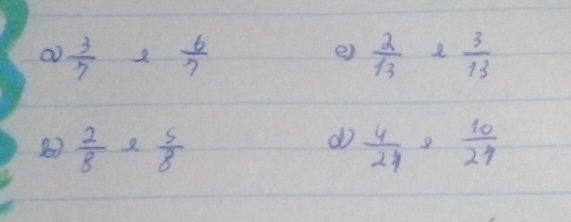 a) 3/7 e 6/7
c) 2/13 e 3/13
b) 2/8 e 5/8
d) 4/21 e 10/21